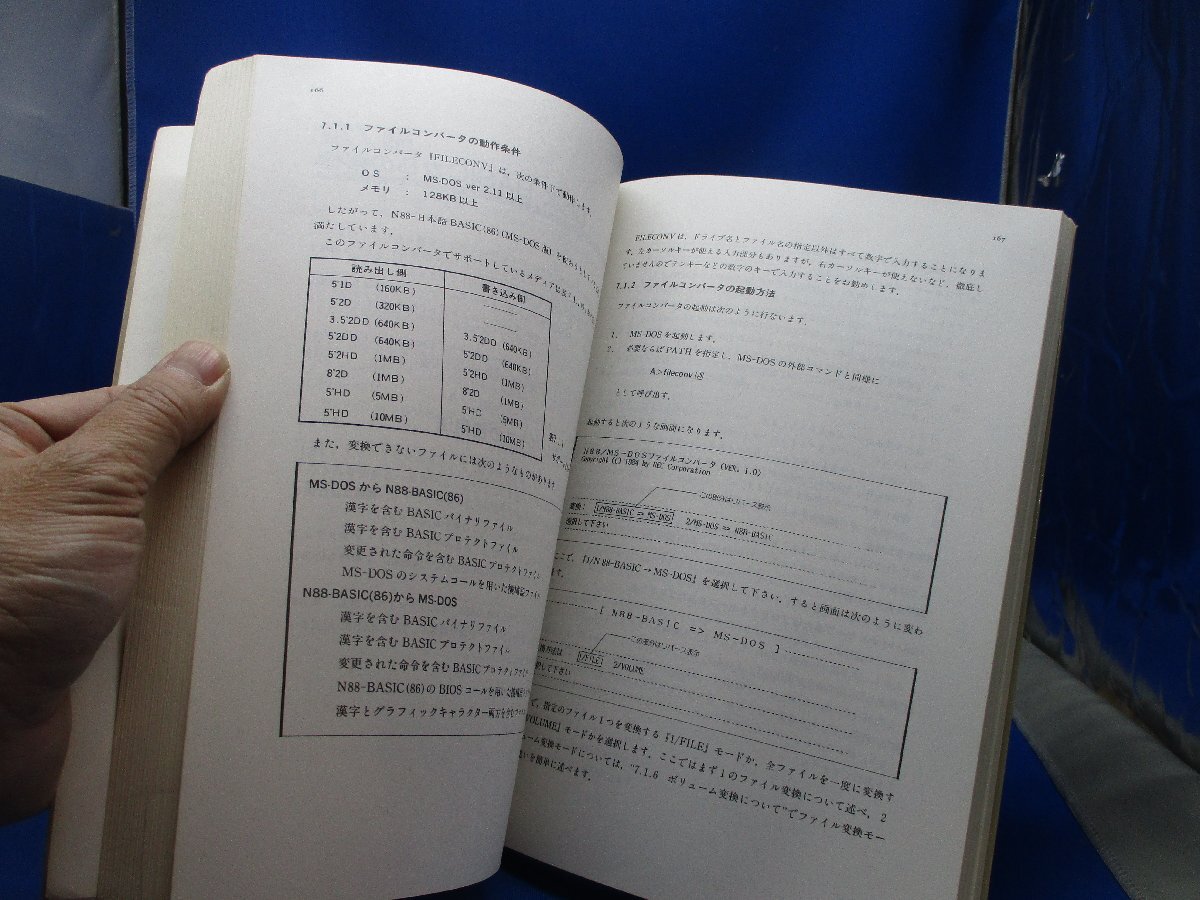 166
7.1.1 ファイルコンバータの動作条件
ファイルコンバータ『FILECONV』は、次の条件下で動作します。
OS : MS-DOS ver 2.11 以上
メモリ : 128KB 以上
したがって、N88-日本語 BASIC(86)(MS-DOS 版)を
満たしています。
このファイルコンバータでサポートしているメディア
読み出し側 書き込み側
5"1D (160KB)
5"2D (320KB)
3.5"2DD (640KB) 3.5"2DD (640KB)
5"2DD (640KB) 5"2DD (640KB)
5"2HD (1MB) 5"2HD (1MB)
8"2D (1MB) 8"2D (1MB)
5"HD (5MB) 5"HD (5MB)
5"HD (10MB) 5"HD (10MB)
また、変換できないファイルには次のようなものがあります
MS-DOS から N88-BASIC(86)
漢字を含む BASIC バイナリファイル
漢字を含む BASIC プロテクトファイル
変更された命令を含む BASIC プロテクトファイル
MS-DOS のシステムコールを用いた機械語ファイル
N88-BASIC(86)から MS-DOS
漢字を含む BASIC バイナリファイル
漢字を含む BASIC プロテクトファイル
変更された命令を含む BASIC プロテクトファイル
N88-BASIC(86)の BIOS コールを用いた
漢字とグラフィックキャラクター両方を含む
167
FILECONVは、ドライブ名とファイル名の指定以外はすべて数字で入力することになりま
す。左カーソルキーが使える入力部分もありますが、右カーソルキーが使えないなど、徹底し
ていませんのでテンキーなどの数字のキーで入力することをお勧めします。
7.1.2 ファイルコンバータの起動方法
ファイルコンバータの起動は次のように行ないます。
1. MS-DOS を起動します。
2. 必要ならば PATH を指定し、MS-DOS の外部コマンドと同様に
A>fileconv
として呼び出す。
起動すると次のような画面になります。
N88/MS-DOSファイルコンバータ (VER. 1.0)
Copyright (C) 1984 by NEC Corporation
この部分はリバース表示
変換: 1/N88-BASIC => MS-DOS 2/MS-DOS => N88-BASIC
選択して下さい
ここで、『1/N88-BASIC→MS-DOS』を選択して下さい。すると画面は次のように変わ
ます。
[ N88-BASIC => MS-DOS ]
この部分はリバース表示
1/FILE 2/VOLUME
択して下さい
て、指定のファイル1つを変換する『1/FILE』モードか、全ファイルを一度に変換す
VOLUME』モードかを選択します。ここではまず1のファイル変換について述べ、2
ューム変換モードについては、"7.1.6 ボリューム変換について"でファイル変換モー
違いを簡単に述べます。